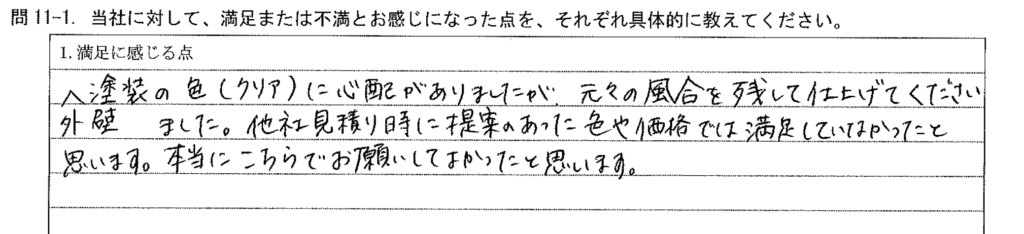 問 11-1. 当社に対して、満足または不満とお感じになった点を、それぞれ具体的に教えてください。
1. 満足に感じる点
∧塗装の色(クリア)に心配がありましたが、元々の風合を残して仕上げてください
外壁 ました。他社見積り時に提案のあった色や価格では満足していなかったと
思います。本当にこちらでお願いしてよかったと思います。